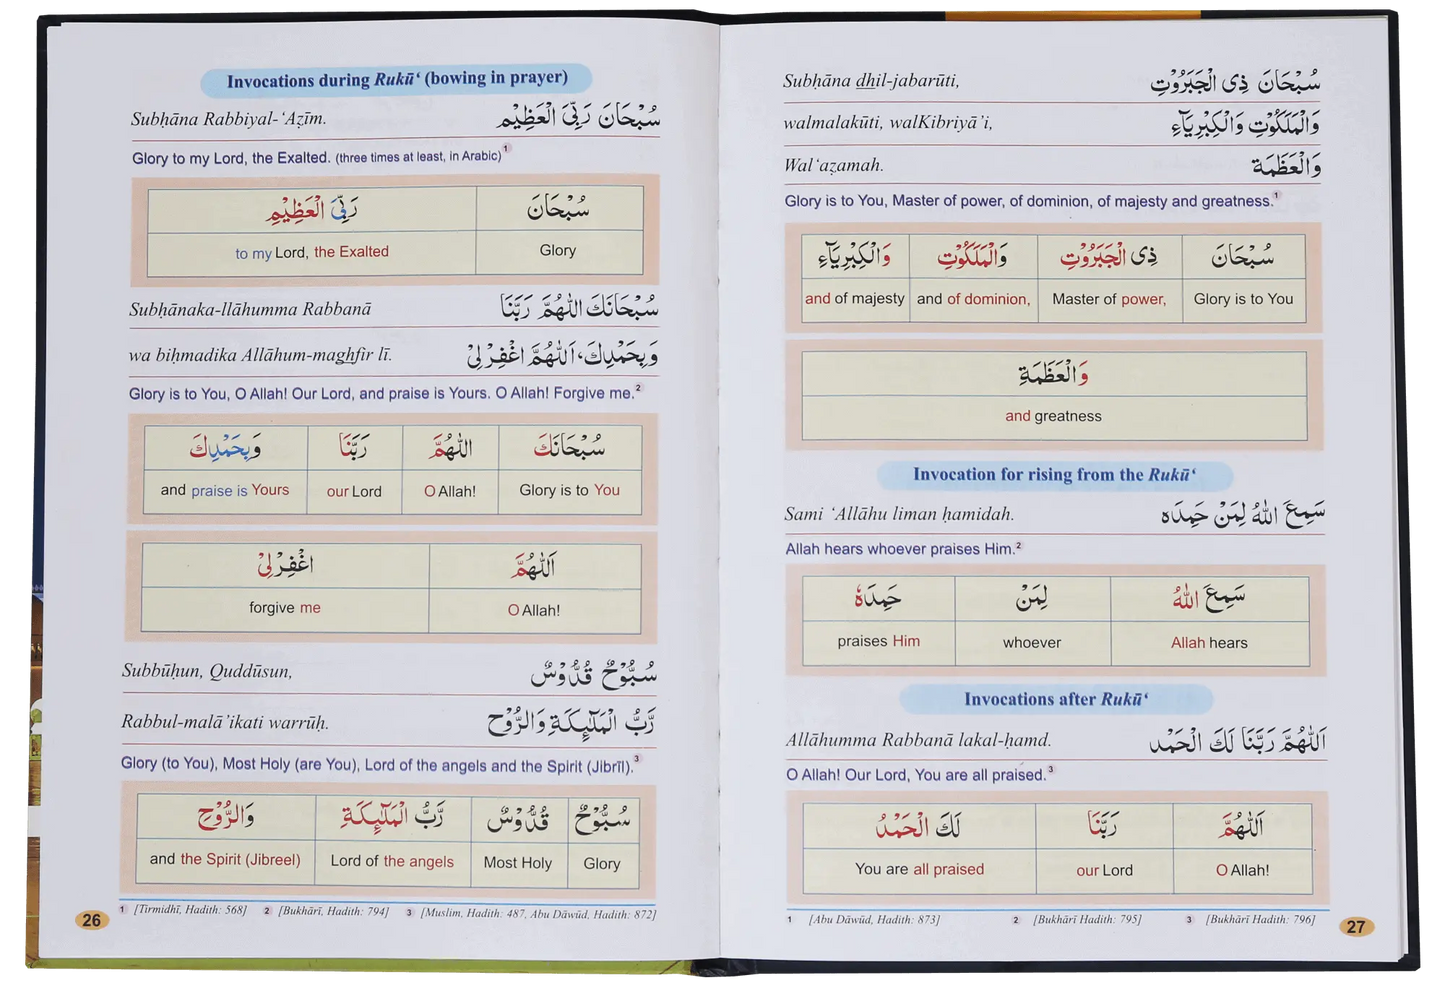 Invocations during Rukū‘ (bowing in prayer)
Subḥāna Rabbiyal-‘Aẓīm. سُبْحَانَ رَبِّيَ الْعَظِيْم
Glory to my Lord, the Exalted. (three times at least, in Arabic)¹
سُبْحَانَ رَبِّيَ الْعَظِيْمِ
Glory to my Lord, the Exalted
Subḥānaka-llāhumma Rabbanā سُبْحَانَكَ اللّٰهُمَّ رَبَّنَا
wa biḥmadika Allāhum-maghfir lī. وَبِحَمْدِكَ، اَللّٰهُمَّ اغْفِرْلِيْ
Glory is to You, O Allah! Our Lord, and praise is Yours. O Allah! Forgive me.²
سُبْحَانَكَ اللّٰهُمَّ رَبَّنَا وَبِحَمْدِكَ
Glory is to You O Allah! our Lord and praise is Yours
اَللّٰهُمَّ اغْفِرْلِيْ
O Allah! forgive me
Subbūḥun, Quddūsun, سُبُّوْحٌ قُدُّوْسٌ
Rabbul-malā’ikati warrūḥ. رَبُّ الْمَلٰٓئِكَةِ وَالرُّوْح
Glory (to You), Most Holy (are You), Lord of the angels and the Spirit (Jibrīl).³
سُبُّوْحٌ قُدُّوْسٌ رَبُّ الْمَلٰٓئِكَةِ وَالرُّوْحِ
Glory Most Holy Lord of the angels and the Spirit (Jibreel)
1 [Tirmidhī, Hadith: 568] 2 [Bukhārī, Hadith: 794] 3 [Muslim, Hadith: 487, Abu Dāwūd, Hadith: 872]
26
Subḥāna dhil-jabarūti, سُبْحَانَ ذِى الْجَبَرُوْتِ
walmalakūti, walKibriyā’i, وَالْمَلَكُوْتِ وَالْكِبْرِيَآءِ
Wal‘aẓamah. وَالْعَظَمَة
Glory is to You, Master of power, of dominion, of majesty and greatness.¹
سُبْحَانَ ذِى الْجَبَرُوْتِ وَالْمَلَكُوْتِ وَالْكِبْرِيَآءِ
Glory is to You Master of power, and of dominion, and of majesty
وَالْعَظَمَةِ
and greatness
Invocation for rising from the Rukū‘
Sami ‘Allāhu liman ḥamidah. سَمِعَ اللّٰهُ لِمَنْ حَمِدَه
Allah hears whoever praises Him.²
سَمِعَ اللّٰهُ لِمَنْ حَمِدَهٗ
Allah hears whoever praises Him
Invocations after Rukū‘
Allāhumma Rabbanā lakal-ḥamd. اَللّٰهُمَّ رَبَّنَا لَكَ الْحَمْد
O Allah! Our Lord, You are all praised.³
اَللّٰهُمَّ رَبَّنَا لَكَ الْحَمْدُ
O Allah! our Lord You are all praised
1 [Abu Dāwūd, Hadith: 873] 2 [Bukhārī Hadith: 795] 3 [Bukhārī Hadith: 796]
27